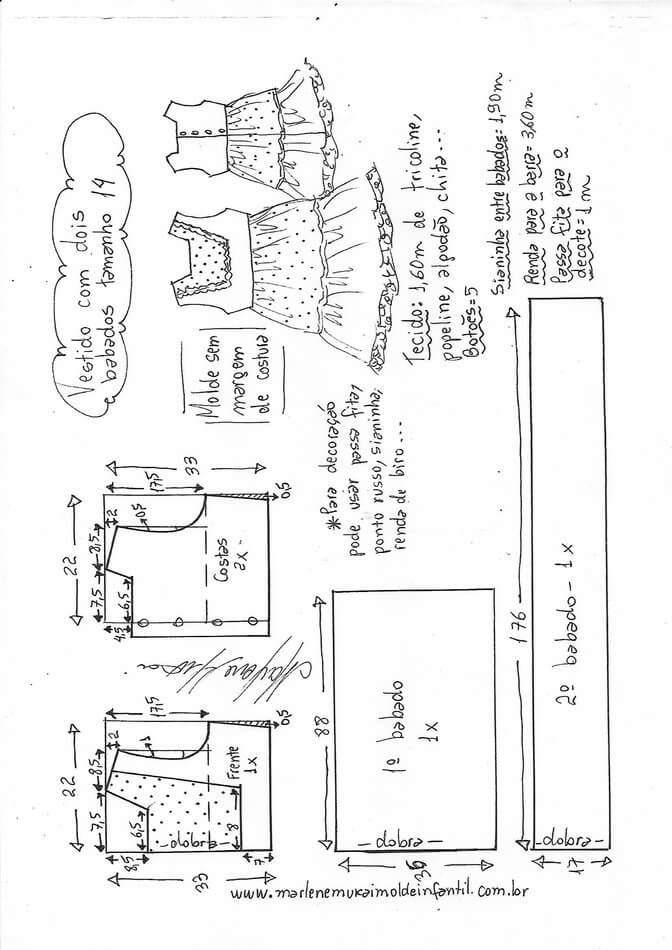 Vestido com dois
babados tamanho 14
Molde sem
margem
de costura
Tecido: 1,60m de tricoline,
popeline, algodão, chita...
Botões=5
Sianinha entre babados=1,90m
Renda para a barra=3,60m
Passa fita para o
decote=1m
*Para decoração
pode usar passa fita,
ponto russo, sianinha,
renda de biro...
33
17,5
0,5
22
2
8,5
7,5
0,5
6,5
4,5
Costas
2x
33
17,5
0,5
22
2
8,5
7,5
1
6,5
8,5
8
7
Frente
1x
dobra
88
36
1º babado
1x
dobra
176
17
2º babado - 1x
dobra
www.marlenemukaimoldeinfantil.com.br